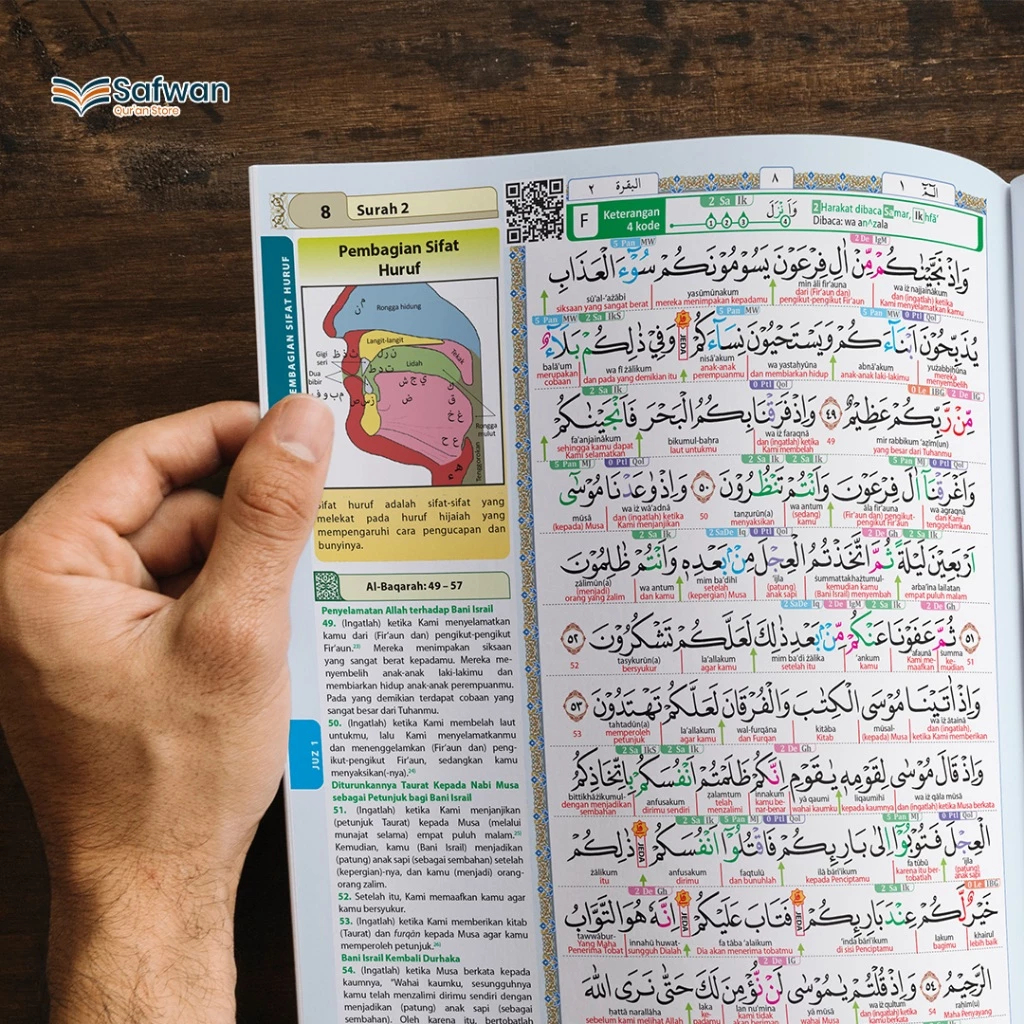 Safwan
Qur'an Store
8 Surah 2
البقرة ٢
٨
الٓمّٓ ١
F
Keterangan
4 kode
2 Sa Ik
1 2 3 4
وَاَنْزَلَ
2 Harakat dibaca Samar, Ikhfā'
Dibaca: wa an^zala
PEMBAGIAN SIFAT HURUF
Pembagian Sifat
Huruf
Rongga hidung
Langit-langit
Gigi
seri
Lidah
Dua
bibir
Rongga
mulut
Tenggorokan
Sifat huruf adalah sifat-sifat yang
melekat pada huruf hijaiah yang
mempengaruhi cara pengucapan dan
bunyinya.
Al-Baqarah: 49 – 57
Penyelamatan Allah terhadap Bani Israil
49. (Ingatlah) ketika Kami menyelamatkan
kamu dari (Fir'aun dan) pengikut-pengikut
Fir'aun.²³⁾ Mereka menimpakan siksaan
yang sangat berat kepadamu. Mereka me-
nyembelih anak-anak laki-lakimu dan
membiarkan hidup anak-anak perempuanmu.
Pada yang demikian terdapat cobaan yang
sangat besar dari Tuhanmu.
50. (Ingatlah) ketika Kami membelah laut
untukmu, lalu Kami menyelamatkanmu
dan menenggelamkan (Fir'aun dan) peng-
ikut-pengikut Fir'aun, sedangkan kamu
menyaksikan(-nya).²⁴⁾
Diturunkannya Taurat Kepada Nabi Musa
sebagai Petunjuk bagi Bani Israil
51. (Ingatlah) ketika Kami menjanjikan
(petunjuk Taurat) kepada Musa (melalui
munajat selama) empat puluh malam.²⁵⁾
Kemudian, kamu (Bani Israil) menjadikan
(patung) anak sapi (sebagai sembahan) setelah
(kepergian)-nya, dan kamu (menjadi) orang-
orang zalim.
52. Setelah itu, Kami memaafkan kamu agar
kamu bersyukur.
53. (Ingatlah) ketika Kami memberikan kitab
(Taurat) dan furqān kepada Musa agar kamu
memperoleh petunjuk.²⁶⁾
Bani Israil Kembali Durhaka
54. (Ingatlah) ketika Musa berkata kepada
kaumnya, "Wahai kaumku, sesungguhnya
kamu telah menzalimi dirimu sendiri dengan
menjadikan (patung) anak sapi (sebagai
sembahan). Oleh karena itu, bertobatlah
JUZ 1
وَاِذْ نَجَّيْنٰكُمْ مِّنْ اٰلِ فِرْعَوْنَ يَسُوْمُوْنَكُمْ سُوْۤءَ الْعَذَابِ
wa iż najjainākum min āli fir'auna yasūmūnakum sū'al-'ażābi
dan (ingatlah) ketika Kami menyelamatkan kamu dari (Fir'aun dan) pengikut-pengikut Fir'aun mereka menimpakan kepadamu siksaan yang sangat berat
يُذَبِّحُوْنَ اَبْنَاۤءَكُمْ وَيَسْتَحْيُوْنَ نِسَاۤءَكُمْ وَفِيْ ذٰلِكُمْ بَلَاۤءٌ
yużabbiḥūna abnā'akum wa yastaḥyūna nisā'akum wa fī żālikum balā'um
mereka menyembelih anak-anak laki-lakimu dan membiarkan hidup anak-anak perempuanmu dan pada yang demikian itu merupakan cobaan
مِّنْ رَّبِّكُمْ عَظِيْمٌ ٤٩ وَاِذْ فَرَقْنَا بِكُمُ الْبَحْرَ فَاَنْجَيْنٰكُمْ
mir rabbikum 'aẓīm(un) 49 wa iż faraqnā bikumul-baḥra fa'anjainākum
yang besar dari Tuhanmu dan (ingatlah) ketika Kami membelah laut untukmu sehingga kamu dapat Kami selamatkan
وَاَغْرَقْنَآ اٰلَ فِرْعَوْنَ وَاَنْتُمْ تَنْظُرُوْنَ ٥٠ وَاِذْ وٰعَدْنَا مُوْسٰٓى
wa agraqnā āla fir'auna wa antum tanẓurūn(a) 50 wa iż wā'adnā mūsā
dan Kami tenggelamkan (Fir'aun dan) pengikut-pengikut Fir'aun (sedang) kamu menyaksikan dan (ingatlah) ketika Kami menjanjikan (kepada) Musa
اَرْبَعِيْنَ لَيْلَةً ثُمَّ اتَّخَذْتُمُ الْعِجْلَ مِنْۢ بَعْدِهٖ وَاَنْتُمْ ظٰلِمُوْنَ
arba'īna lailatan summattakhażtumul- 'ijla mim ba'dihī wa antum ẓālimūn(a)
empat puluh malam kemudian kamu (Bani Israil) menyembah (patung) anak sapi setelah (kepergian) Musa dan kamu (menjadi) orang yang zalim
٥١ ثُمَّ عَفَوْنَا عَنْكُمْ مِّنْۢ بَعْدِ ذٰلِكَ لَعَلَّكُمْ تَشْكُرُوْنَ ٥٢
51 summa 'afaunā 'ankum mim ba'di żālika la'allakum tasykurūn(a) 52
kemudian Kami memaafkan kamu setelah itu agar kamu bersyukur
وَاِذْ اٰتَيْنَا مُوْسَى الْكِتٰبَ وَالْفُرْقَانَ لَعَلَّكُمْ تَهْتَدُوْنَ ٥٣
wa iż ātainā mūsal- kitāba wal-furqāna la'allakum tahtadūn(a) 53
dan (ingatlah), ketika Kami memberikan (kepada) Musa Kitab dan Furqan agar kamu memperoleh petunjuk
وَاِذْ قَالَ مُوْسٰى لِقَوْمِهٖ يٰقَوْمِ اِنَّكُمْ ظَلَمْتُمْ اَنْفُسَكُمْ بِاتِّخَاذِكُمُ
wa iż qāla mūsā liqaumihī yā qaumi innakum ẓalamtum anfusakum bittikhāżikumul-
dan (ingatlah) ketika Musa berkata kepada kaumnya wahai kaumku kamu benar-benar telah menzalimi dirimu sendiri dengan menjadikan sembahan
الْعِجْلَ فَتُوْبُوْٓا اِلٰى بَارِىِٕكُمْ فَاقْتُلُوْٓا اَنْفُسَكُمْ ذٰلِكُمْ
'ijla fa tūbū ilā bāri'ikum faqtulū anfusakum żālikum
(patung) anak sapi karena itu bertobatlah kepada Penciptamu dan bunuhlah dirimu itu
خَيْرٌ لَّكُمْ عِنْدَ بَارِىِٕكُمْ فَتَابَ عَلَيْكُمْ اِنَّهٗ هُوَ التَّوَّابُ
khairul lakum 'inda bāri'ikum fa tāba 'alaikum innahū huwat- tawwābur-
lebih baik bagimu di sisi Penciptamu Dia akan menerima tobatmu sungguh Dialah Yang Maha Penerima Tobat
الرَّحِيْمُ ٥٤ وَاِذْ قُلْتُمْ يٰمُوْسٰى لَنْ نُّؤْمِنَ لَكَ حَتّٰى نَرَى اللّٰهَ
raḥīm(u) 54 wa iż qultum yā mūsā lan nu'mina laka ḥattā narallāha
Maha Penyayang dan (ingatlah) ketika kamu berkata wahai Musa kami tidak akan beriman kepadamu sebelum kami melihat Allah